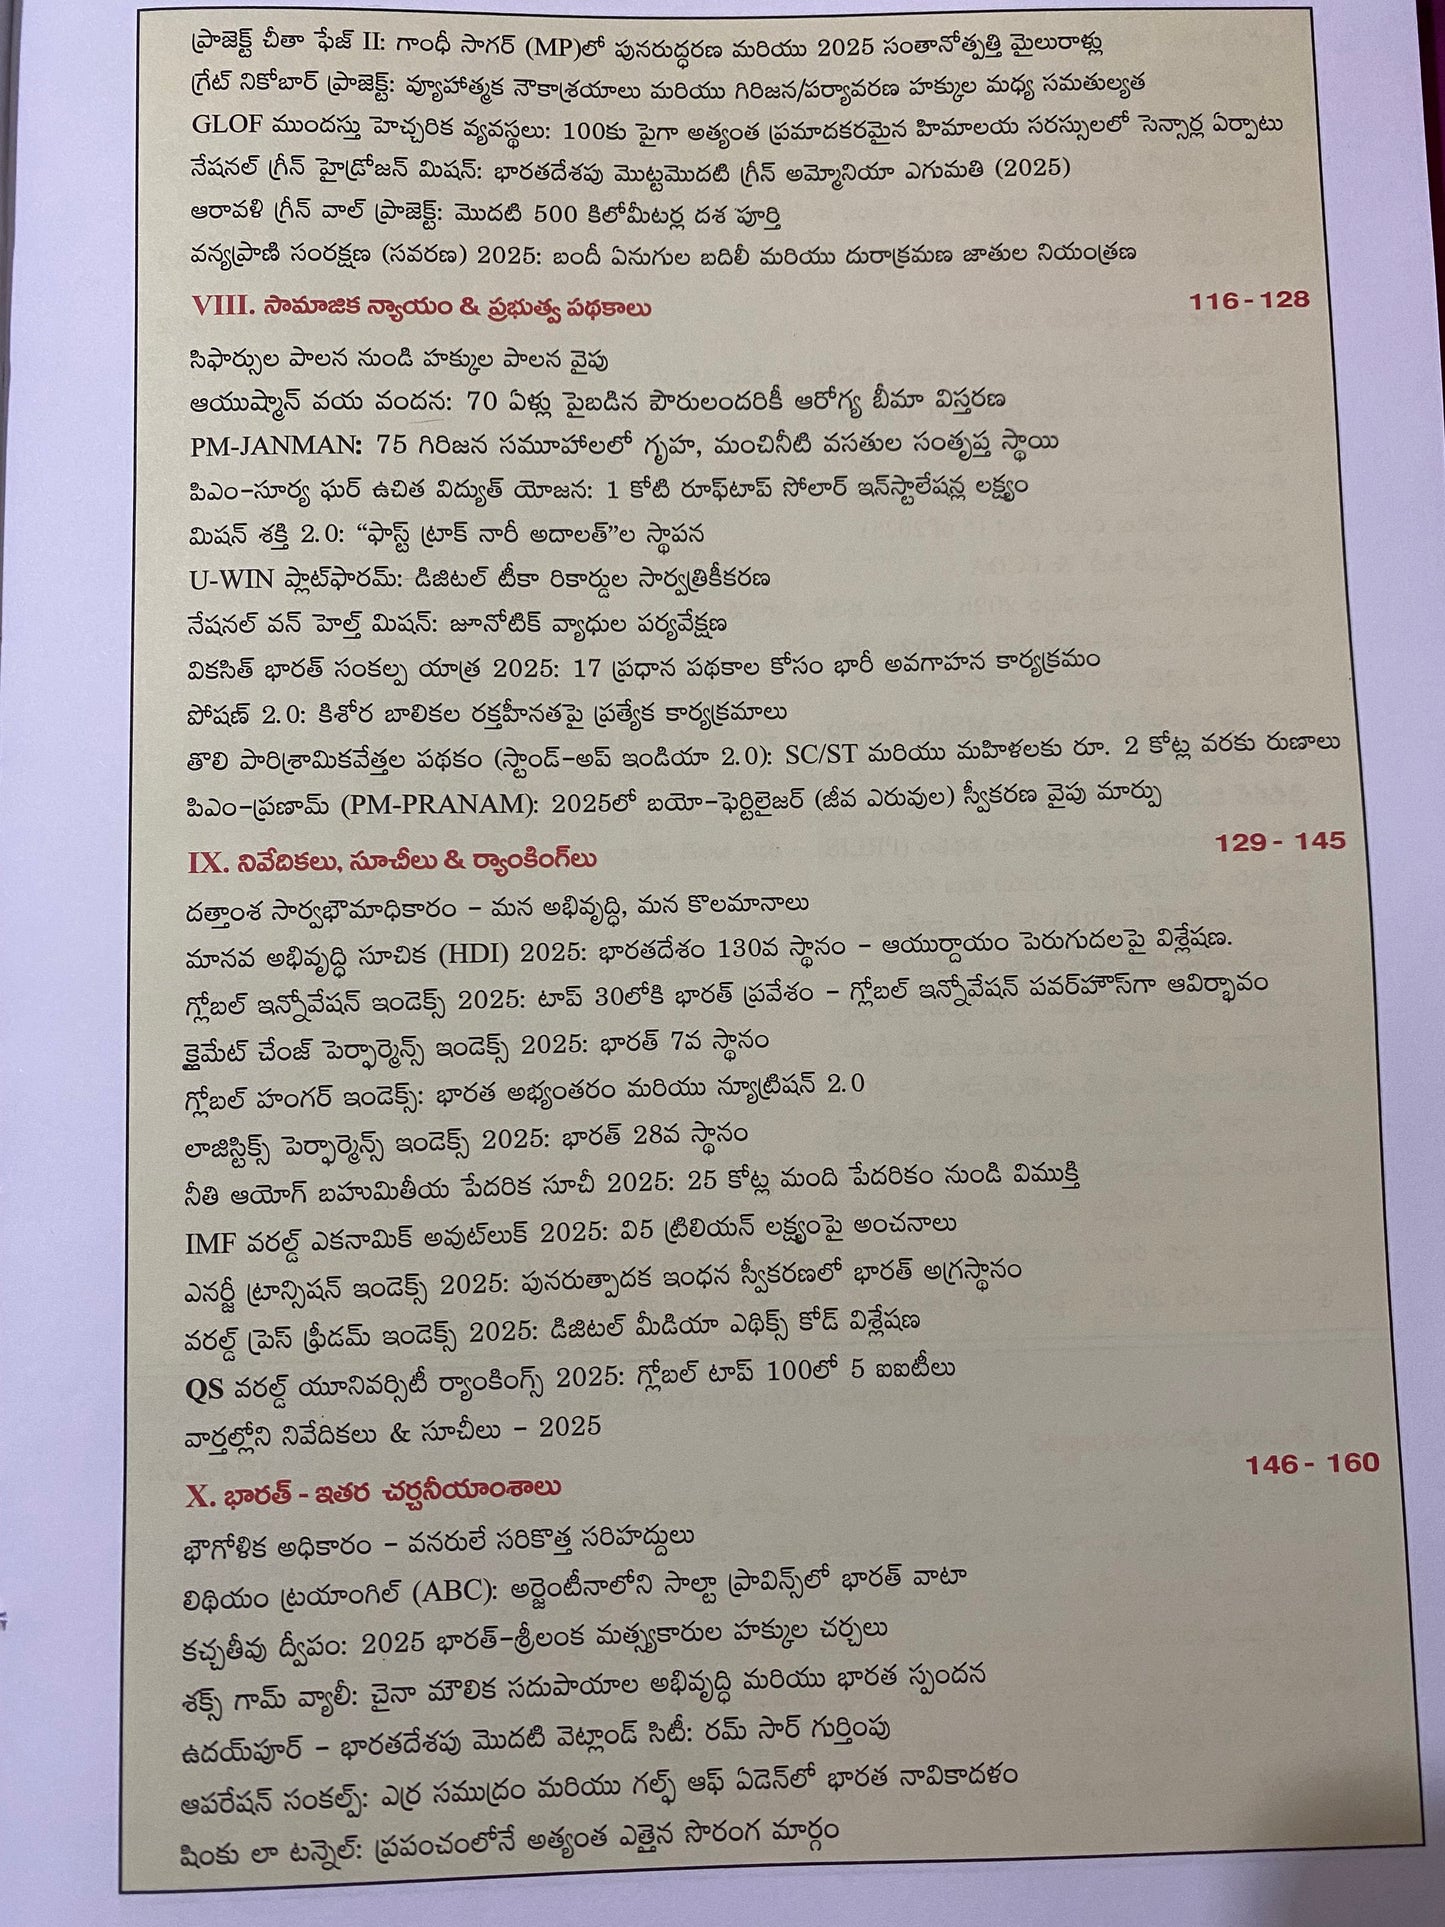 ప్రాజెక్ట్ చీతా ఫేజ్ II: గాంధీ సాగర్ (MP)లో పునరుద్ధరణ మరియు 2025 సంతానోత్పత్తి మైలురాళ్లు
గ్రేట్ నికోబార్ ప్రాజెక్ట్: వ్యూహాత్మక నౌకాశ్రయాలు మరియు గిరిజన/పర్యావరణ హక్కుల మధ్య సమతుల్యత
GLOF ముందస్తు హెచ్చరిక వ్యవస్థలు: 100కు పైగా అత్యంత ప్రమాదకరమైన హిమాలయ సరస్సులలో సెన్సార్ల ఏర్పాటు
నేషనల్ గ్రీన్ హైడ్రోజన్ మిషన్: భారతదేశపు మొట్టమొదటి గ్రీన్ అమ్మోనియా ఎగుమతి (2025)
ఆరావళి గ్రీన్ వాల్ ప్రాజెక్ట్: మొదటి 500 కిలోమీటర్ల దశ పూర్తి
వన్యప్రాణి సంరక్షణ (సవరణ) 2025: బందీ ఏనుగుల బదిలీ మరియు దురాక్రమణ జాతుల నియంత్రణ
VIII. సామాజిక న్యాయం & ప్రభుత్వ పథకాలు 116 - 128
సిఫార్సుల పాలన నుండి హక్కుల పాలన వైపు
ఆయుష్మాన్ వయ వందన: 70 ఏళ్లు పైబడిన పౌరులందరికీ ఆరోగ్య బీమా విస్తరణ
PM-JANMAN: 75 గిరిజన సమూహాలలో గృహ, మంచినీటి వసతుల సంతృప్త స్థాయి
పిఎం-సూర్య ఘర్ ఉచిత విద్యుత్ యోజన: 1 కోటి రూఫ్‌టాప్ సోలార్ ఇన్‌స్టాలేషన్ల లక్ష్యం
మిషన్ శక్తి 2.0: “ఫాస్ట్ ట్రాక్ నారీ అదాలత్”ల స్థాపన
U-WIN ప్లాట్‌ఫారమ్: డిజిటల్ టీకా రికార్డుల సార్వత్రికీకరణ
నేషనల్ వన్ హెల్త్ మిషన్: జూనోటిక్ వ్యాధుల పర్యవేక్షణ
వికసిత్ భారత్ సంకల్ప యాత్ర 2025: 17 ప్రధాన పథకాల కోసం భారీ అవగాహన కార్యక్రమం
పోషణ్ 2.0: కిశోర బాలికల రక్తహీనతపై ప్రత్యేక కార్యక్రమాలు
తొలి పారిశ్రామికవేత్తల పథకం (స్టాండ్-అప్ ఇండియా 2.0): SC/ST మరియు మహిళలకు రూ. 2 కోట్ల వరకు రుణాలు
పిఎం-ప్రణామ్ (PM-PRANAM): 2025లో బయో-ఫెర్టిలైజర్ (జీవ ఎరువుల) స్వీకరణ వైపు మార్పు
IX. నివేదికలు, సూచీలు & ర్యాంకింగ్‌లు 129 - 145
దత్తాంశ సార్వభౌమాధికారం - మన అభివృద్ధి, మన కొలమానాలు
మానవ అభివృద్ధి సూచిక (HDI) 2025: భారతదేశం 130వ స్థానం - ఆయుర్దాయం పెరుగుదలపై విశ్లేషణ.
గ్లోబల్ ఇన్నోవేషన్ ఇండెక్స్ 2025: టాప్ 30లోకి భారత్ ప్రవేశం - గ్లోబల్ ఇన్నోవేషన్ పవర్‌హౌస్‌గా ఆవిర్భావం
క్లైమేట్ చేంజ్ పెర్ఫార్మెన్స్ ఇండెక్స్ 2025: భారత్ 7వ స్థానం
గ్లోబల్ హంగర్ ఇండెక్స్: భారత అభ్యంతరం మరియు న్యూట్రిషన్ 2.0
లాజిస్టిక్స్ పెర్ఫార్మెన్స్ ఇండెక్స్ 2025: భారత్ 28వ స్థానం
నీతి ఆయోగ్ బహుమితీయ పేదరిక సూచీ 2025: 25 కోట్ల మంది పేదరికం నుండి విముక్తి
IMF వరల్డ్ ఎకనామిక్ అవుట్‌లుక్ 2025: వి5 ట్రిలియన్ లక్ష్యంపై అంచనాలు
ఎనర్జీ ట్రాన్సిషన్ ఇండెక్స్ 2025: పునరుత్పాదక ఇంధన స్వీకరణలో భారత్ అగ్రస్థానం
వరల్డ్ ప్రెస్ ఫ్రీడమ్ ఇండెక్స్ 2025: డిజిటల్ మీడియా ఎథిక్స్ కోడ్ విశ్లేషణ
QS వరల్డ్ యూనివర్సిటీ ర్యాంకింగ్స్ 2025: గ్లోబల్ టాప్ 100లో 5 ఐఐటీలు
వార్తల్లోని నివేదికలు & సూచీలు - 2025
X. భారత్ - ఇతర చర్చనీయాంశాలు 146 - 160
భౌగోళిక అధికారం - వనరులే సరికొత్త సరిహద్దులు
లిథియం ట్రయాంగిల్ (ABC): అర్జెంటీనాలోని సాల్టా ప్రావిన్స్‌లో భారత్ వాటా
కచ్చతీవు ద్వీపం: 2025 భారత్-శ్రీలంక మత్స్యకారుల హక్కుల చర్చలు
శక్స్ గామ్ వ్యాలీ: చైనా మౌలిక సదుపాయాల అభివృద్ధి మరియు భారత స్పందన
ఉదయ్‌పూర్ - భారతదేశపు మొదటి వెట్లాండ్ సిటీ: రమ్ సార్ గుర్తింపు
ఆపరేషన్ సంకల్ప్: ఎర్ర సముద్రం మరియు గల్ఫ్ ఆఫ్ ఏడెన్‌లో భారత నావికాదళం
షింకు లా టన్నెల్: ప్రపంచంలోనే అత్యంత ఎత్తైన సొరంగ మార్గం